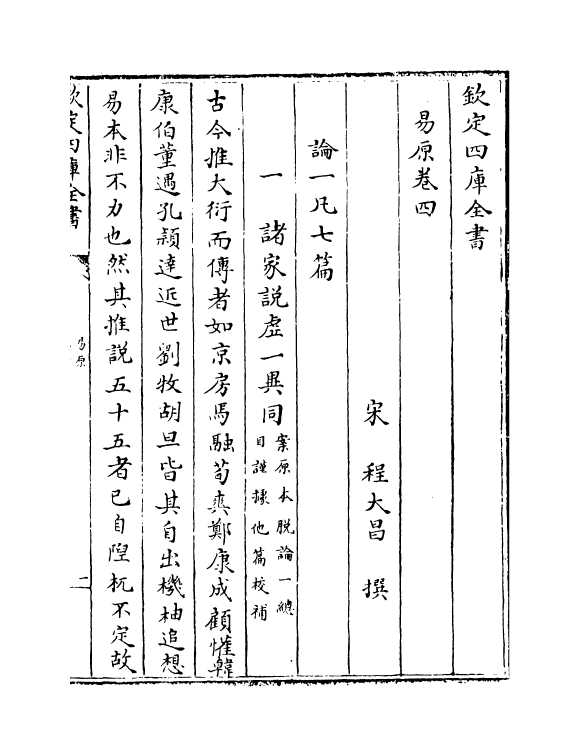 欽定四庫全書
易原卷四
宋 程大昌 撰
論一凡七篇
一 諸家說虛一異同案原本脫論一總
目謹據他篇校補
古今推大衍而傳者如京房馬融荀爽鄭康成顧懽韓
康伯董遇孔穎達近世劉牧胡旦皆其自出機柚追想
易本非不力也然其推說五十五者已自隉杌不定故
欽定四庫全書
易原